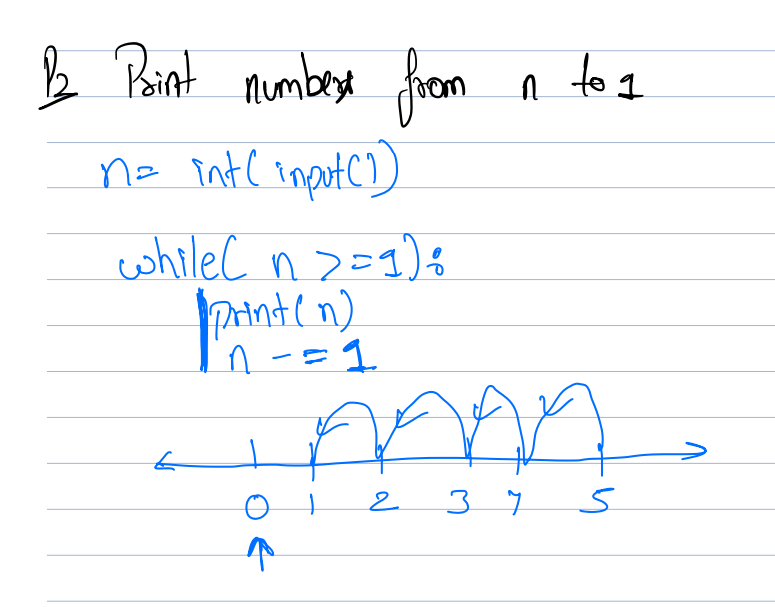 P2 Print numbers from n to 1
n= int( input())
while( n >=1):
print(n)
n -= 1
0 1 2 3 4 5